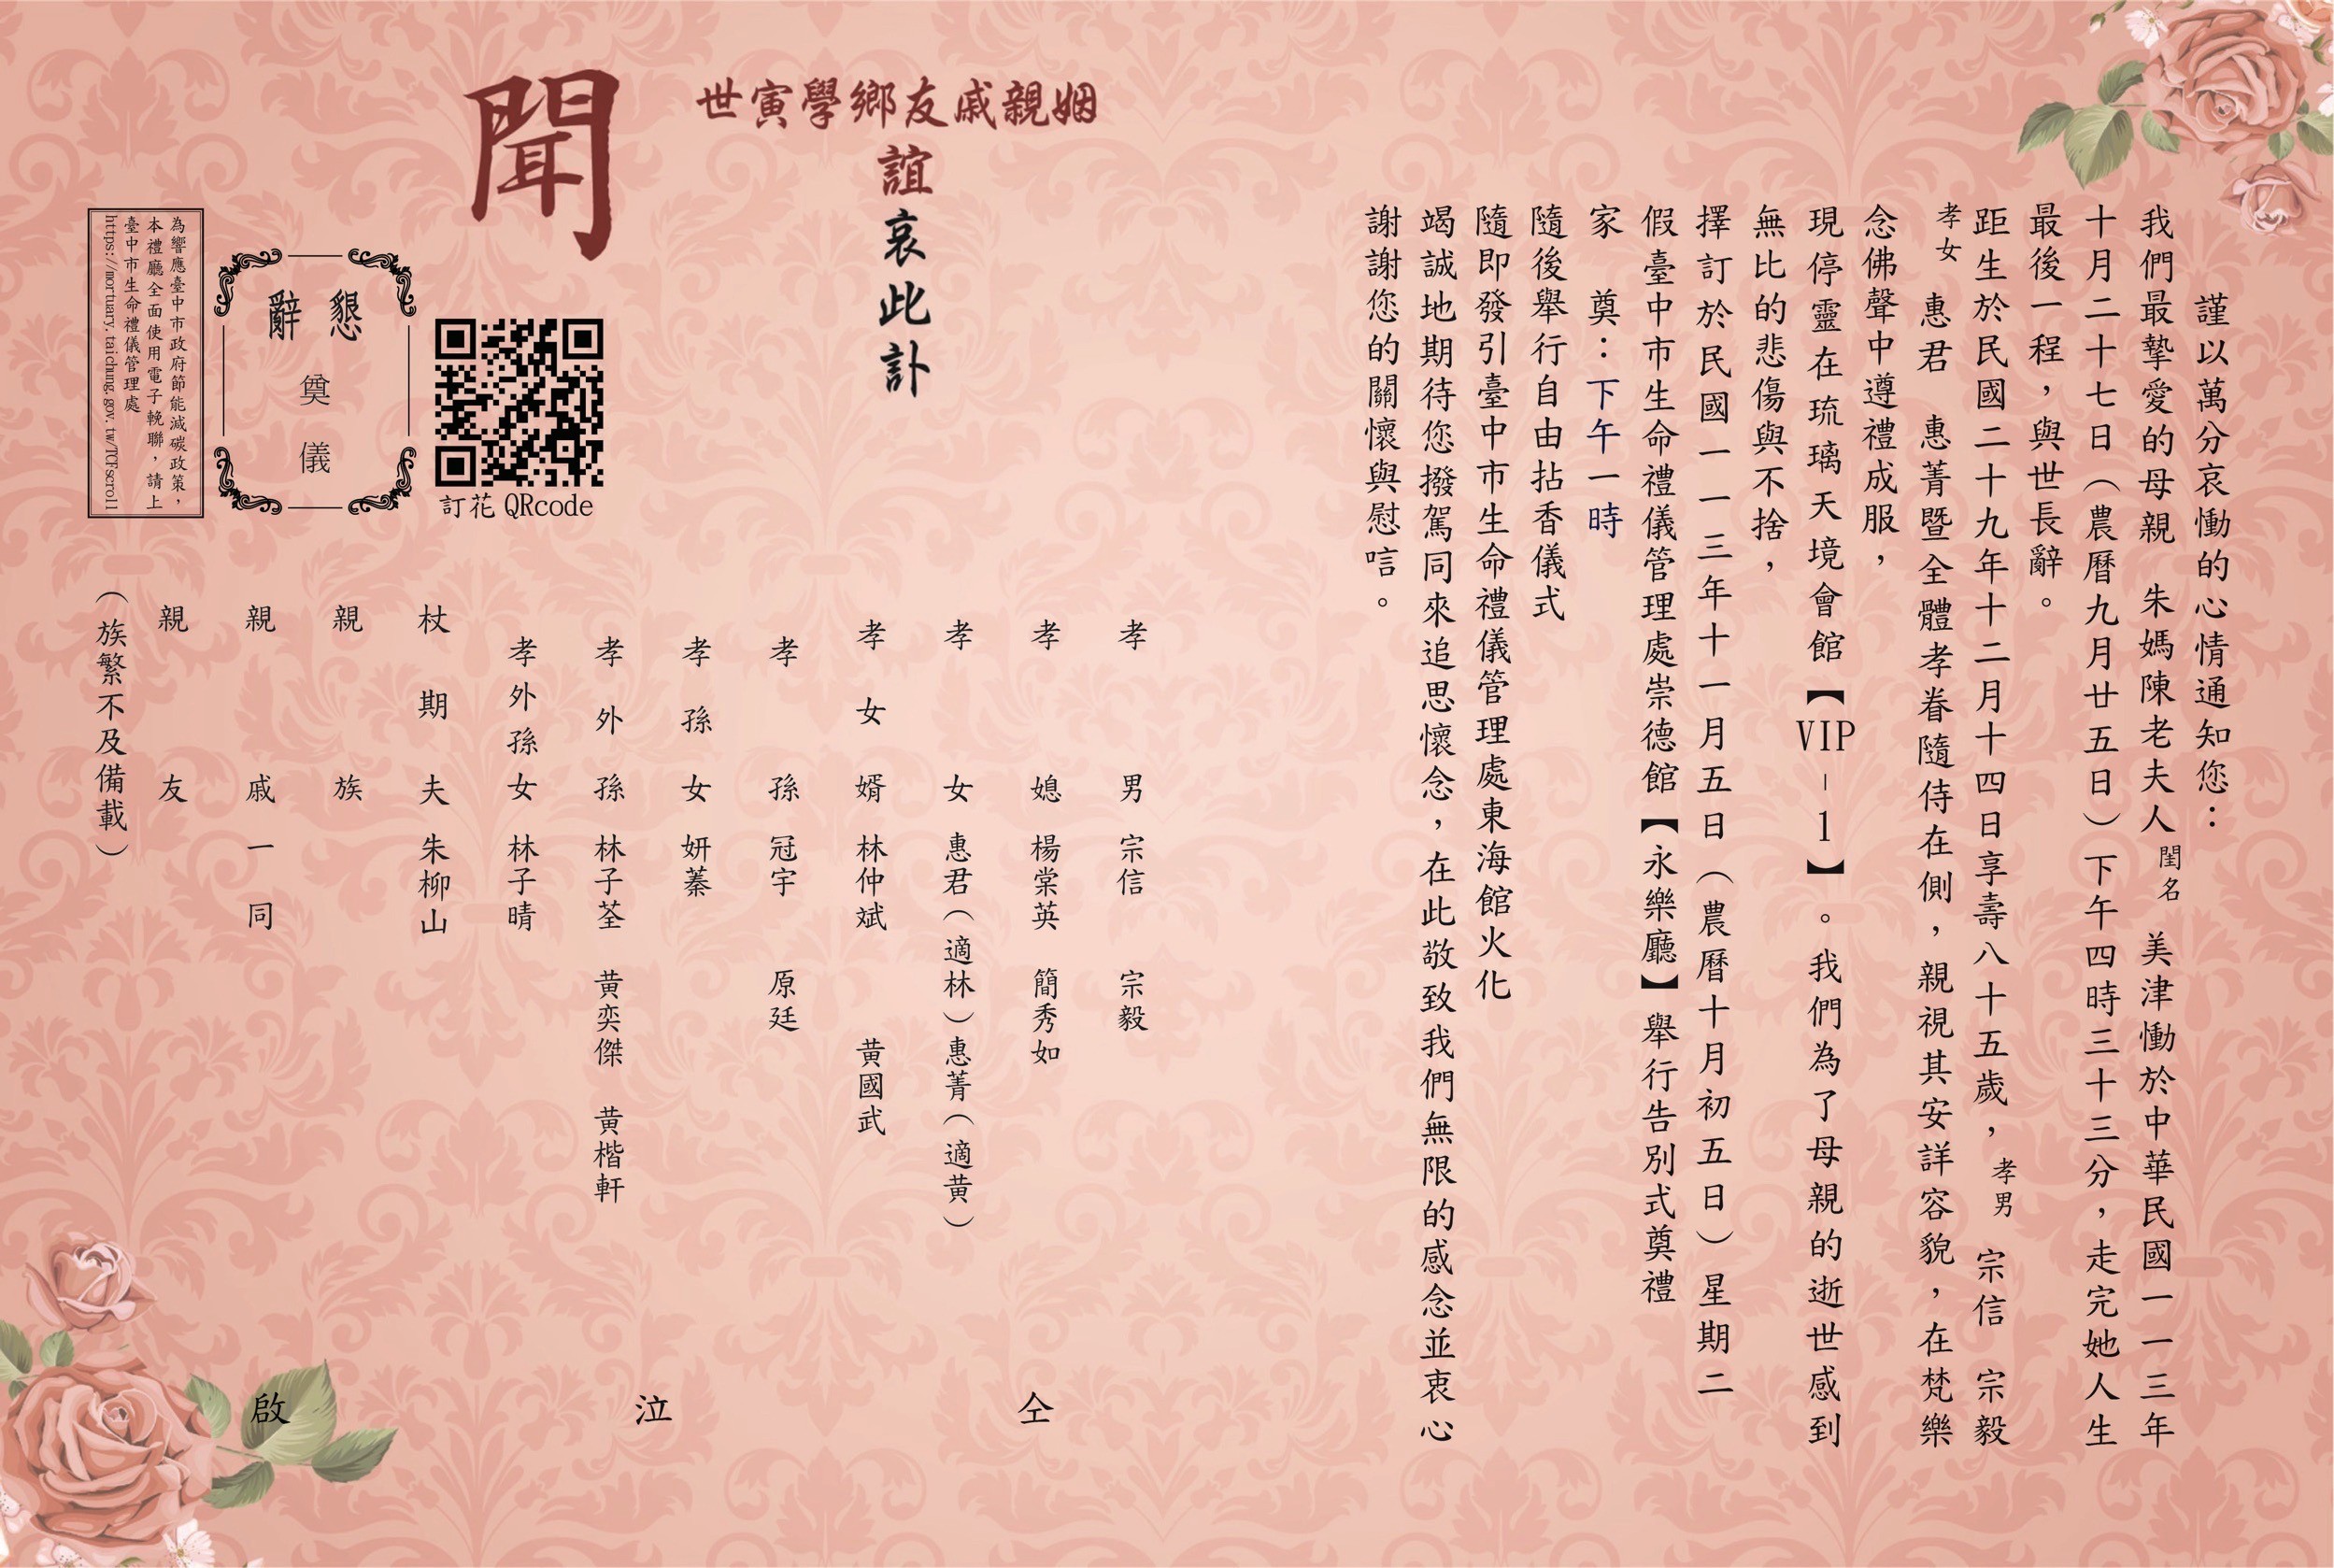 謹以萬分哀慟的心情通知您：
我們最摯愛的母親　朱媽陳老夫人閨名　美津慟於中華民國一一三年
十月二十七日（農曆九月廿五日）下午四時三十三分，走完她人生
最後一程，與世長辭。
距生於民國二十九年十二月十四日享壽八十五歲，孝男　宗信　宗毅
孝女　惠君　惠菁暨全體孝眷隨侍在側，親視其安詳容貌，在梵樂
念佛聲中遵禮成服，
現停靈在琉璃天境會館【VIP－1】。我們為了母親的逝世感到
無比的悲傷與不捨，
擇訂於民國一一三年十一月五日（農曆十月初五日）星期二
假臺中市生命禮儀管理處崇德館【永樂廳】舉行告別式奠禮
家　奠：下午一時
隨後舉行自由拈香儀式
隨即發引臺中市生命禮儀管理處東海館火化
竭誠地期待您撥駕同來追思懷念，在此敬致我們無限的感念並衷心
謝謝您的關懷與慰唁。
姻親戚友鄉學寅世
誼哀此訃
聞
孝男　宗信　宗毅
孝媳　楊棠英　簡秀如
孝女　惠君（適林）惠菁（適黃）
孝女婿　林仲斌　黃國武
孝孫　冠宇　原廷
孝孫女　妍蓁
孝外孫　林子荃　黃奕傑　黃楷軒
孝外孫女　林子晴
杖期夫　朱柳山
親族
親戚一同
親友
（族繁不及備載）
仝　泣　啟
訂花 QRcode
懇辭
奠儀
為響應臺中市政府節能減碳政策，
本禮廳全面使用電子輓聯，請上
臺中市生命禮儀管理處
https://mortuary.taichung.gov.tw/TCFscroll